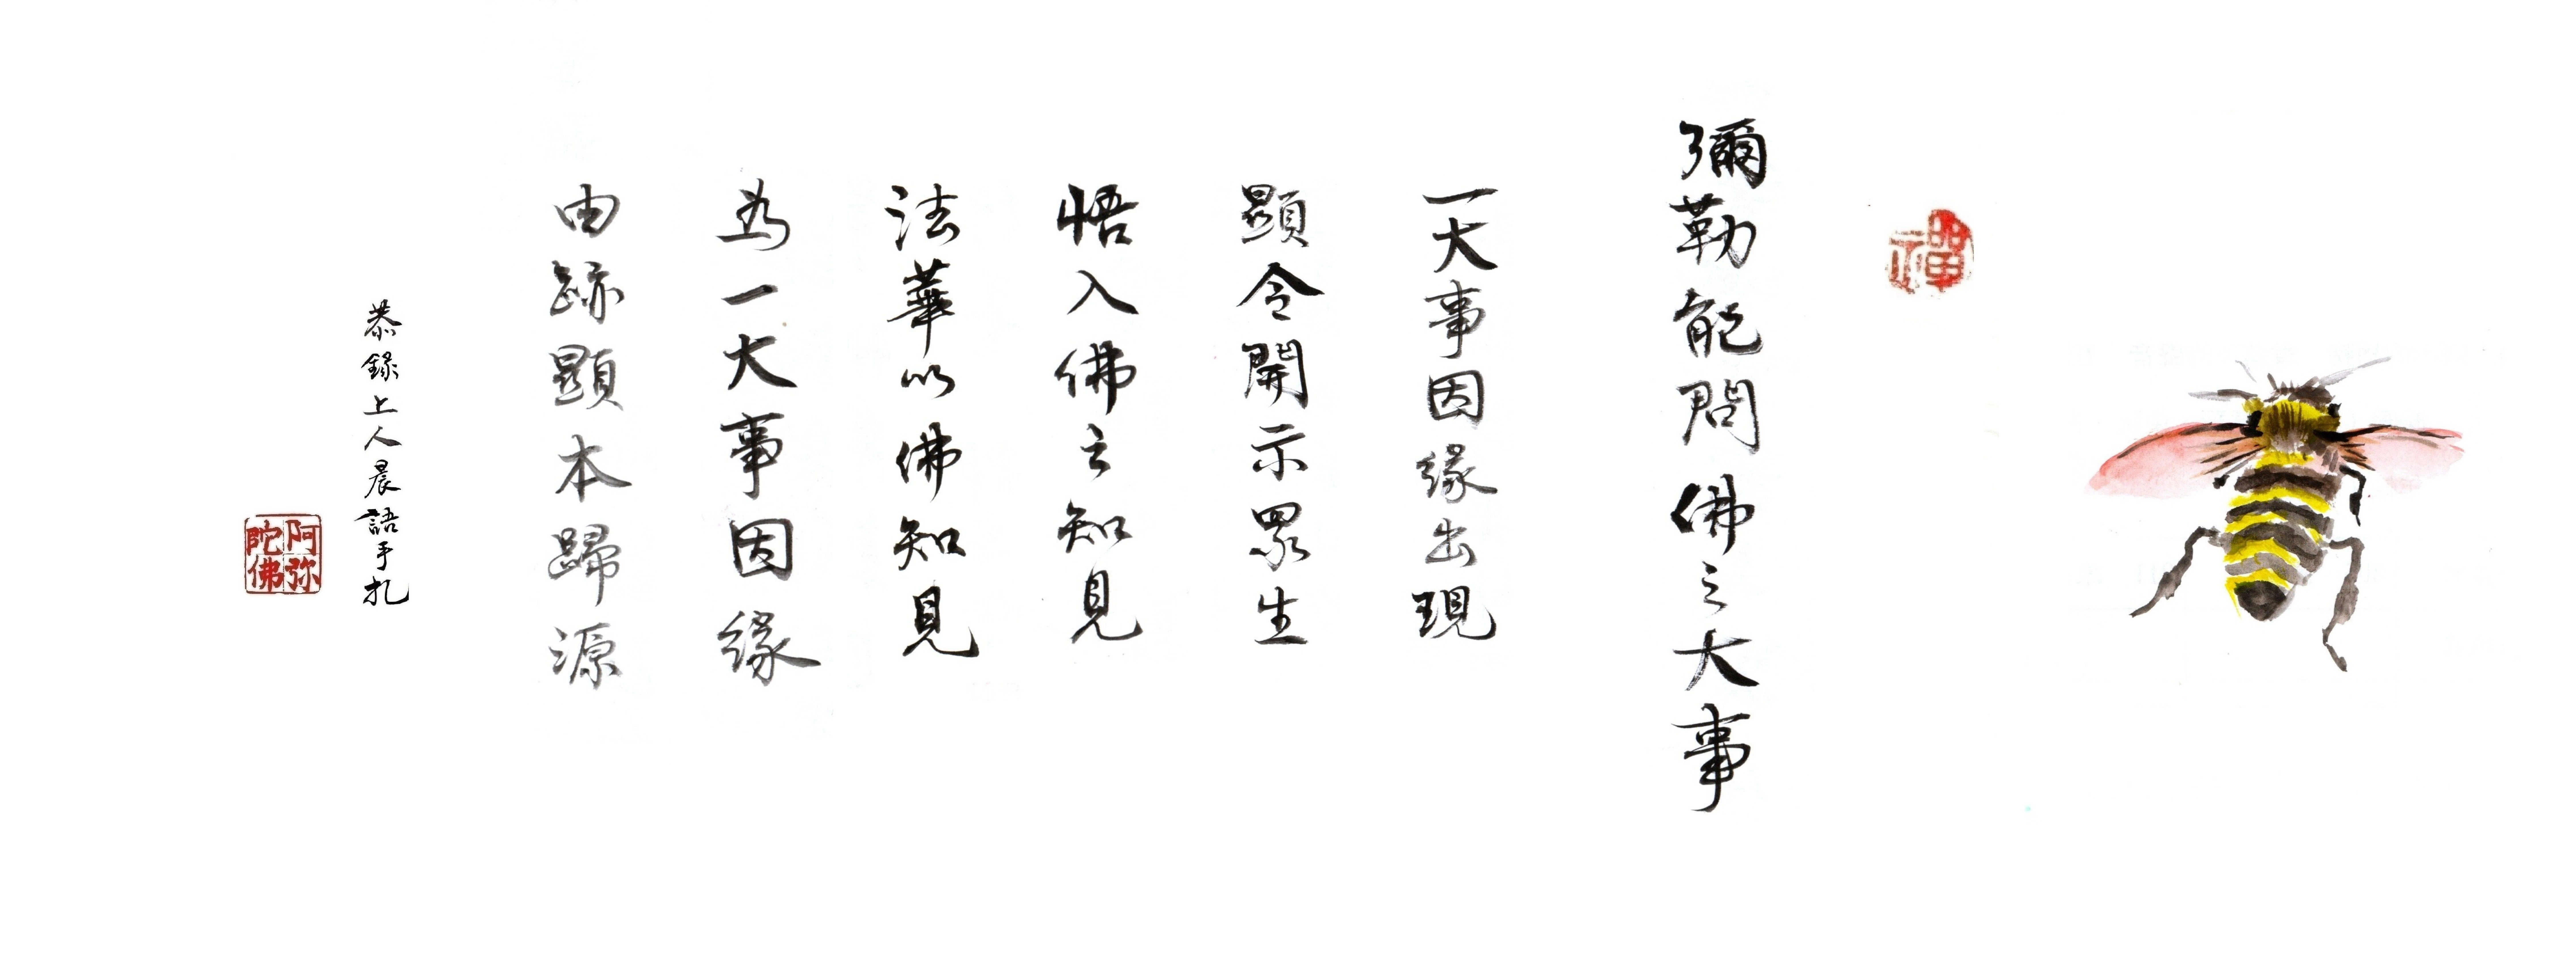 禪
彌勒能問佛之大事
一大事因緣出現
顯令開示眾生
悟入佛之知見
法華以佛知見
為一大事因緣
由跡顯本歸源
恭錄上人晨語手扎
阿弥
陀佛